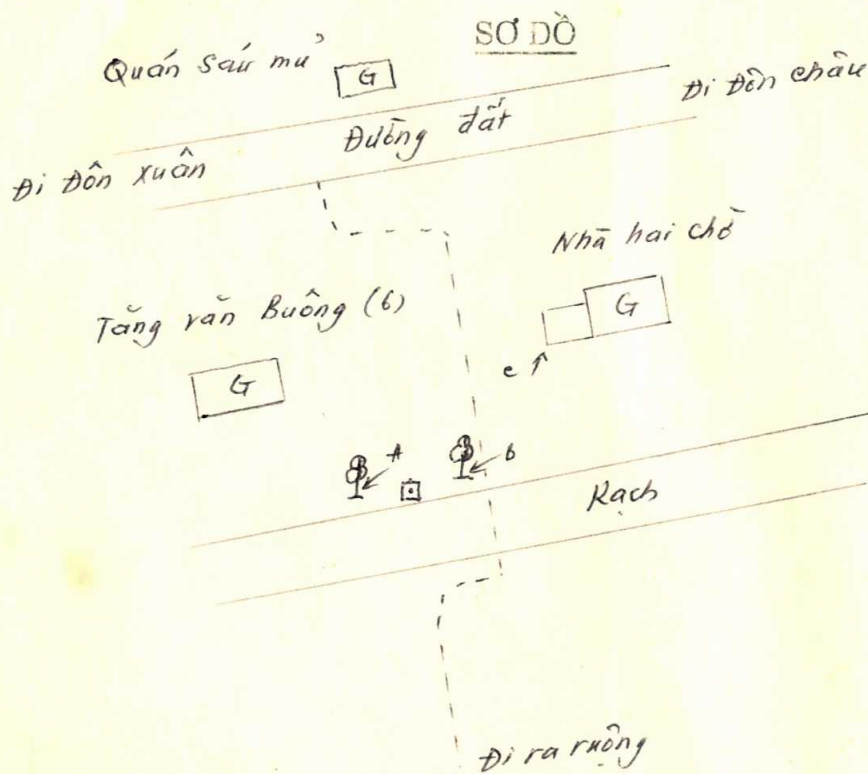 SƠ ĐỒ
Quán Sáu mủ
G
Đi Đôn châu
Đường đất
Đi Đôn Xuân
Nhà hai chở
G
Tăng văn Buông (6)
G
c
A
B
Rạch
Đi ra ruộng